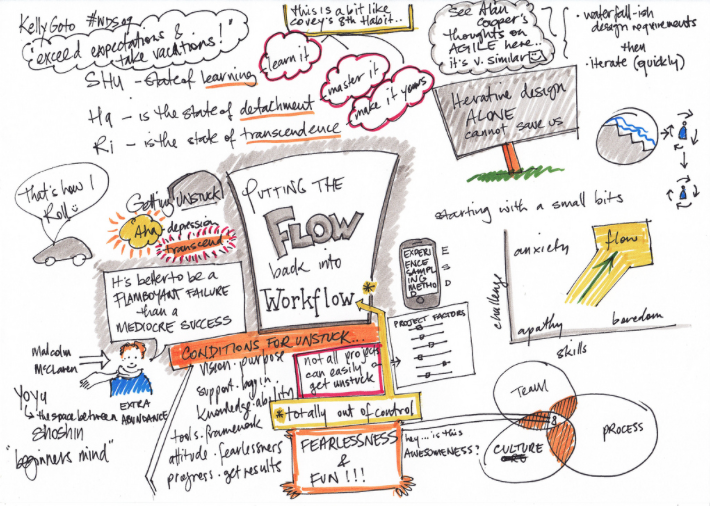 Kelly Goto #WDS09
"exceed expectations &
take vacations!"
SHU - state of learning
Ha - is the state of detachment
Ri - is the state of transcendence
learn it
master it
make it yours
this is a bit like
Covey's 8th Habit..
See Alan
Cooper's
thoughts on
AGILE here...
it's v. similar
• waterfall-ish
design requirements
then
• iterate (quickly)
Iterative design
ALONE
cannot save us
That's how I
Roll
Getting UNSTUCK!
Aha
depression
transcend
PUTTING THE
FLOW
back into
Workflow
*
It's better to be a
FLAMBOYANT FAILURE
than a
MEDIOCRE SUCCESS
Malcolm
McLaren
EXTRA
ABUNDANCE
Yoyu
the space between
Shoshin
"beginners mind"
CONDITIONS FOR UNSTUCK...
vision • purpose
support • buy in
knowledge • ability
tools • framework
attitude • fearlessness
progress • get results
not all projects
can easily
get unstuck
*totally out of control
FEARLESSNESS
&
FUN!!!
EXPERI
ENCE
SAMPL
ING
METHO
D
E
S
D
PROJECT FACTORS
starting with a small bits
challenge
anxiety
flow
apathy
boredom
skills
TEAM
PROCESS
CULTURE
hey... is this
AWESOMENESS?